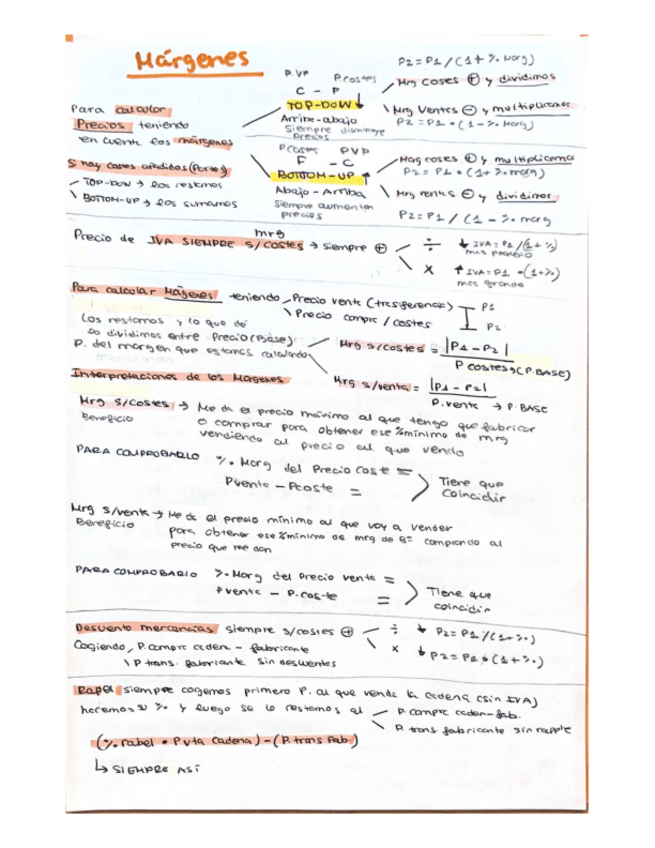 Márgenes
P2 = P1 / (1 + %. Marg)
P.VP P.costes
C - P
Mrg Coses ⊕ y dividimos
TOP-DOW ↓
Para calcular
Precios teniendo
en cuenta los márgenes
Arriba-abajo
Siempre disminuye
Precios
Mrg Ventas ⊖ y multiplicamos
P2 = P1 • (1 - %. Marg)
P.Costes PVP
F - C
BOTTOM-UP ↑
Abajo - Arriba
Siempre aumentan
precios
Marg costes ⊕ y multiplicamo
P2 = P1 • (1 + %. marg)
Mrg ventas ⊖ y dividimos
P2 = P1 / (1 - %. marg
Si hay costes añadidos (Porte)
- TOP-Dow → los restamos
\ BOTTOM-UP → los sumamos
mrg
Precio de IVA SIEMPRE s/costes → siempre ⊕
÷ ↓ IVA = P1 / (1 + %)
mas pequeño
x ↑ IVA = P1 • (1 + %)
mas grande
Para calcular Márgenes teniendo - Precio venta (trasferencia)
\ Precio compra / costes
P1
P2
Los restamos y lo que da
lo dividimos entre Precio (Base)
P. del margen que estamos calculando
Mrg s/costes = |P1 - P2|
P costes → (P.BASE)
Mrg s/venta = |P1 - P2|
P.venta → P.BASE
Interpretaciones de los Margenes
Mrg s/costes → Me da el precio máximo al que tengo que fabricar
Beneficio
o comprar para obtener ese % mínimo de mrg
vendiendo al precio al que vendo
PARA COMPROBARLO %. Marg del Precio Coste =
Pventa - Pcoste =
Tiene que
coincidir
Mrg s/venta → Me da el precio mínimo al que voy a vender
Beneficio
para obtener ese % mínimo de mrg de Bº comprando al
precio que me dan
PARA COMPROBARLO %. Marg del Precio venta =
Pventa - P.coste =
Tiene que
coincidir
Descuento mercancias siempre s/costes ⊕
÷ ↓ P2 = P1 / (1 - %.)
x ↓ P2 = P1 • (1 + %.)
Cogiendo, P.compra caden - fabricante
\ P trans. fabricante sin descuentos
Rapel siempre cogemos primero P. al que vende la cadena (sin IVA)
hacemos el %. y luego se lo restamos al - P. compra caden-fab.
P. trans fabricante sin rapple
(%. rabel • P vta Cadena) - (P. trans Fab.)
↳ SIEMPRE ASÍ